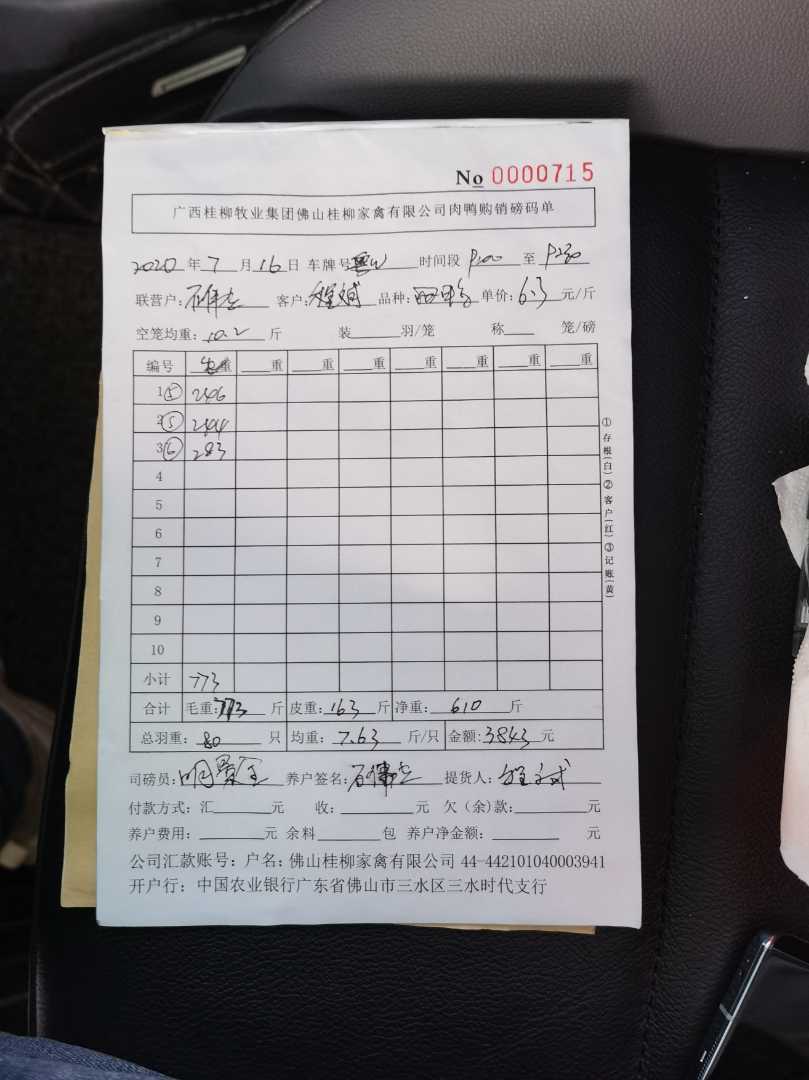 No 0000715
广西桂柳牧业集团佛山桂柳家禽有限公司肉鸭购销磅码单
2020年7月16日 车牌号 时间段 P200 至 P230
联营户: 客户:程斌 品种: 单价:6.3元/斤
空笼均重:10.2斤 装 羽/笼 称 笼/磅
编号 重 重 重 重 重 重 重 重
1⑤ 246
2⑤ 244
3⑥ 283
4
5
6
7
8
9
10
小计 773
合计 毛重:773斤 皮重:163斤 净重:610斤
总羽重:80只 均重:7.63斤/只 金额:3843元
司磅员: 养户签名: 提货人:
付款方式:汇 元 收: 元 欠(余)款: 元
养户费用: 元 余料 包 养户净金额: 元
公司汇款账号:户名:佛山桂柳家禽有限公司 44-442101040003941
开户行:中国农业银行广东省佛山市三水区三水时代支行
①存根(白)②客户(红)③记账(黄)